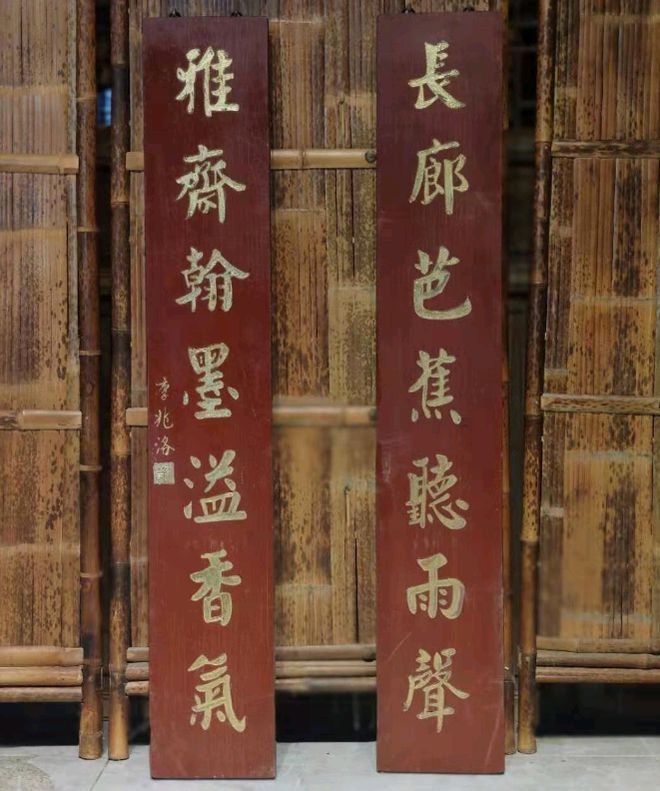 長廊芭蕉聽雨聲
雅齋翰墨溢香氣
李兆洛